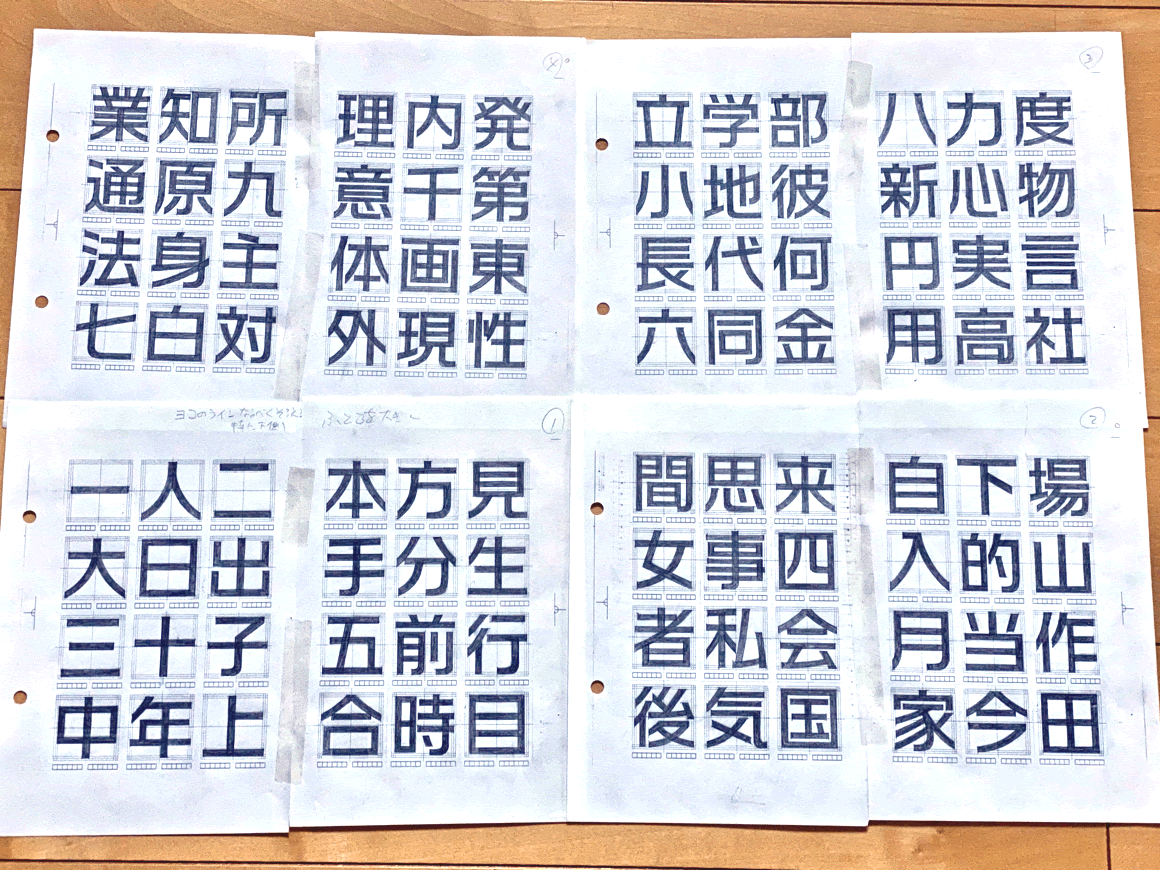 4
業知所 理内発
通原九 意千第
法身主 体画東
七白対 外現性
3
立学部 八力度
小地彼 新心物
長代何 円実言
六同金 用高社
ヨコのライン なるべく
1
一人二 本方見
大日出 手分生
三十子 五前行
中年上 合時目
2
間思来 自下場
女事四 入的山
者私会 月当作
後気国 家今田